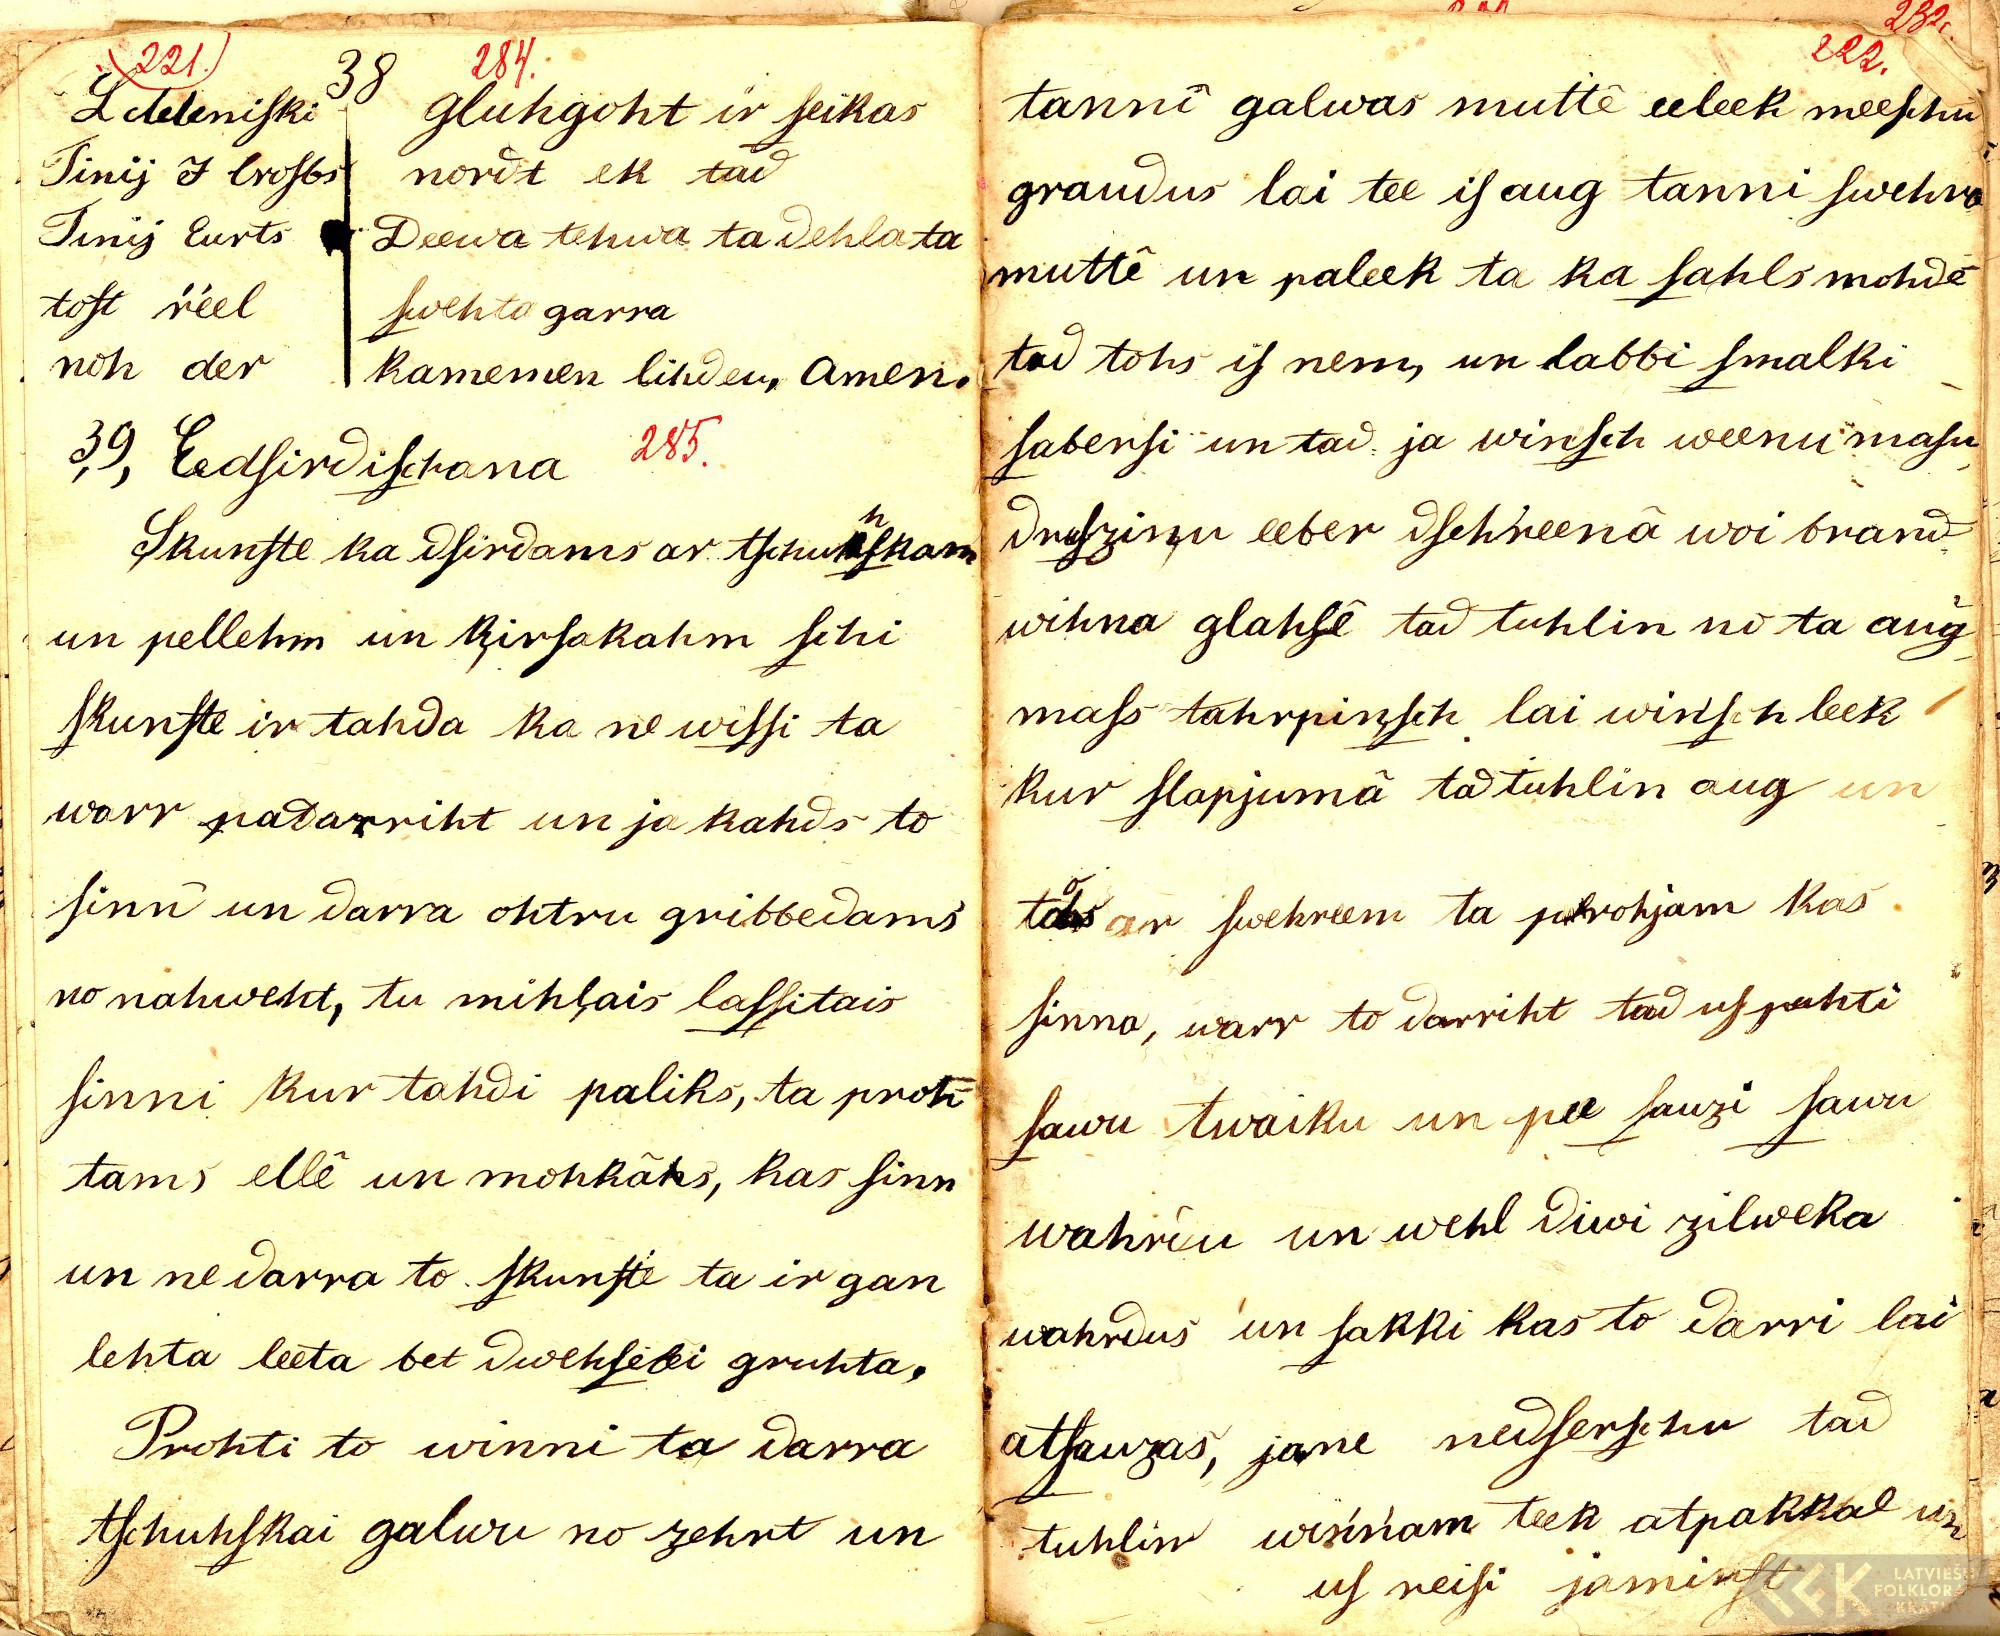 221.
38
284.
Leddeniski
Tinij I Crosbs
Tinij Eurts
tost reel
noh der
gluhgoht ir ſeikas
nordt ek tad
Deewa tehwa ta dehla ta
ſwehta garra
kamemen lihdeu, Amen.
39, Eedſirdiſchana 285.
Skunſte ka dſirdams ar tſchuhſkam
un pellehm un kirſakahm ſchi
ſkunſte ir tahda ka ne wiſſi ta
warr padarriht un ja kahds to
ſinn un darra ohtru gribbedams
no nahweht, tu mihļais laſſitais
ſinni kur tahdi paliks, ta proh
tams ellê un mohkâhs, kas ſinn
un ne darra to ſkunſte ta ir gan
lehta leeta bet dwehſelei gruhta.
Prohti to winni ta darra
tſchuhſkai galwu no zehrt un
232.
222.
tanni galwas muttê eeleek meeſchu
graudus lai tee iſ aug tanni ſwehra
muttê un paleek ta ka ſahls mohdê
tad tohs iſ nem, un labbi ſmalki
ſaberſi un tad ja winſch weenu maſu
druſzinu eeber dſehreenâ woi brand
wihna glahſê tad tuhlin no ta aug
maſs tahrpinſch lai winſch leek
kur ſlapjumâ tad tuhlin aug un
ar ſwehreem ta prohjam kas
ſinna, warr to darriht tad uſ puhti
ſawu twaiku un pee ſauzi ſawu
wahrdu un wehl diwi zilweka
wahrdus un ſakki kas to darri lai
atſauzas, ja ne nedſerſchu tad
tuhlin winnam teek atpakkal un
uſ reiſi jamirſt
LATVIEŠU
FOLKLORAS
KRĀTUVE